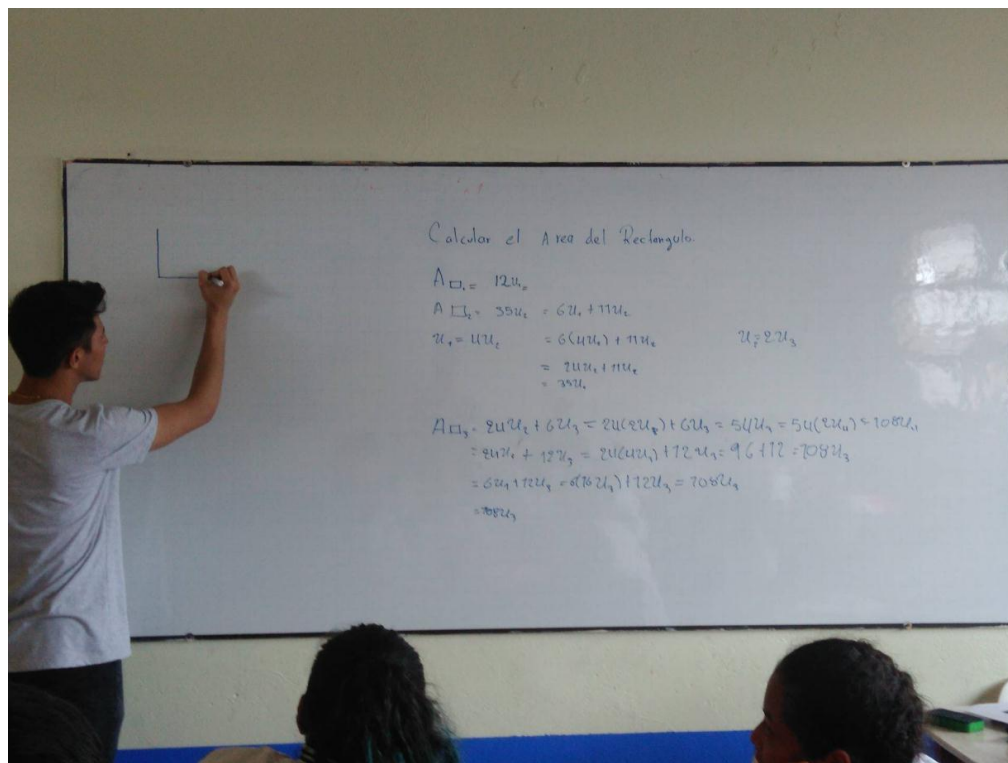 Calcular el Area del Rectangulo.
A□₁= 12u₁
A□₂= 35u₂ = 6u₁ + 11u₂
u₁ = 4u₂ = 6(4u₂) + 11u₂ u₂=2u₃
= 24u₂ + 11u₂
= 35u₂
A□₃= 24u₂ + 6u₃ = 24(2u₃) + 6u₃ = 54u₃ = 54(2u₄) = 108u₄
= 24u₂ + 12u₃ = 24(4u₃) + 12u₃ = 96+12 = 108u₃
= 6u₁ + 12u₃ = 6(16u₃) + 12u₃ = 108u₃
= 108u₃